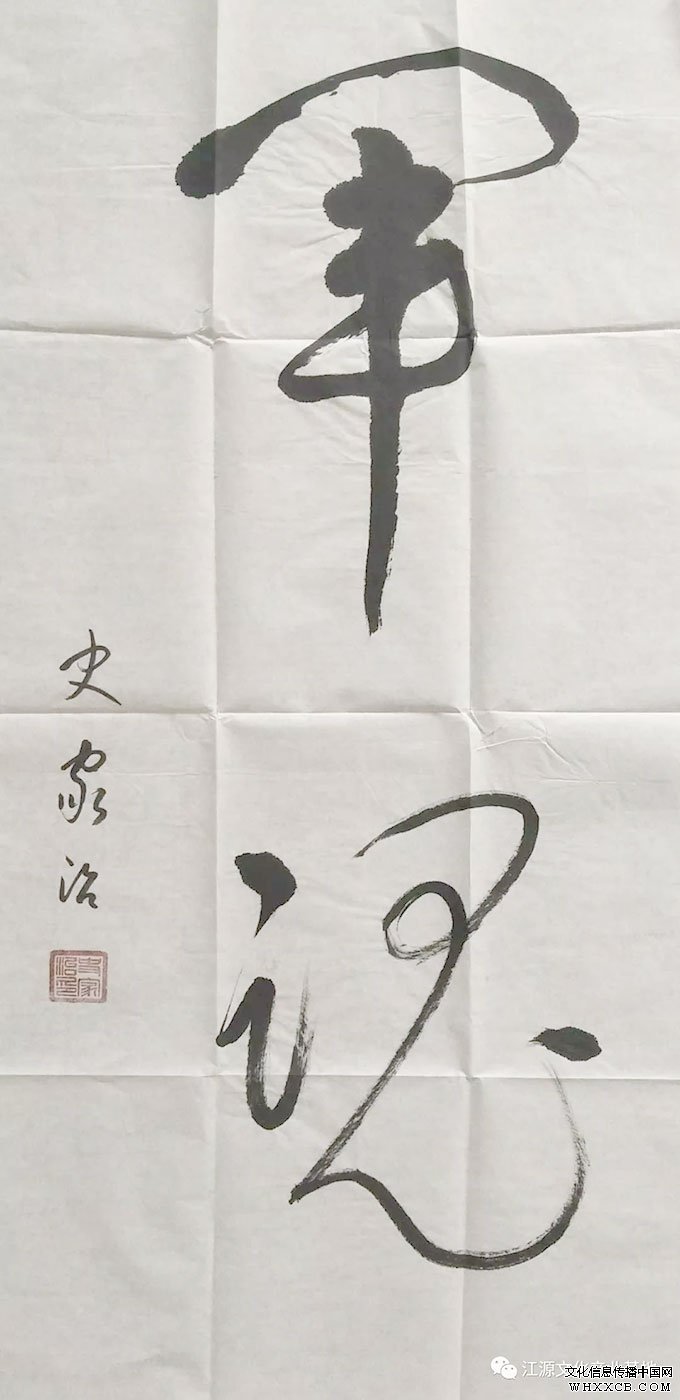 军魂
史家治
史家治印
江源文化产业基地
文化信息传播中国网
WHXXCB.COM